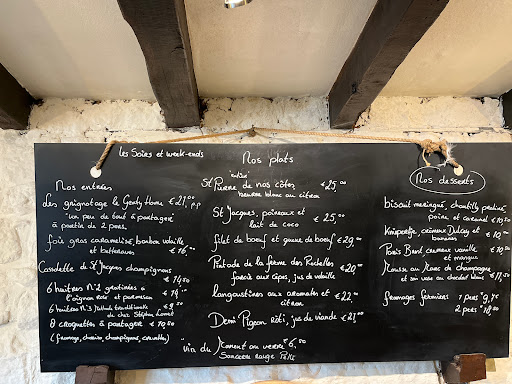 Les Soirs et week-ends
Nos entrées
Les grignotage le Genty Home €21,- p.p
"un peu de tout à partager"
à partir de 2 pers,
foie gras caramelisé, bonbon volaille
et butternut €16,-
Cassolette de St Jacques champignons
€14,50
6 huitres N°2 gratinées à
l'oignon rose et parmesan €19,-
6 huitres N°3
de chez Stéphan €9,50
8 croquettes à partager €10,50
(fromage, chorizo, champignons, crevettes)
Nos plats
"entier"
St Pierre de nos côtes, €25,00
beurre blanc au citron
St Jacques, poireaux et €25,00
lait de coco
filet de boeuf et gomme de boeuf €29,00
Pintade de la ferme des Ruchelles €20,-
farcie aux cèpes, jus de volaille
Langoustines aux aromates et €22,-
citron
Demi Pigeon rôti, jus de viande €21,-
"Vin du Moment au verre €6,50
Sancerre rouge
Nos desserts
biscuit meringué, chantilly praliné
poire et caramel €10,50
crémeux Dulcey et €10,-
bananes
Paris Brest, crémeux vanille €10,-
et mangue
Mousse au Marc de champagne €11,50
et son cœur au chocolat blanc
fromages fermiers 1 pers €9,50
2 pers €18,50